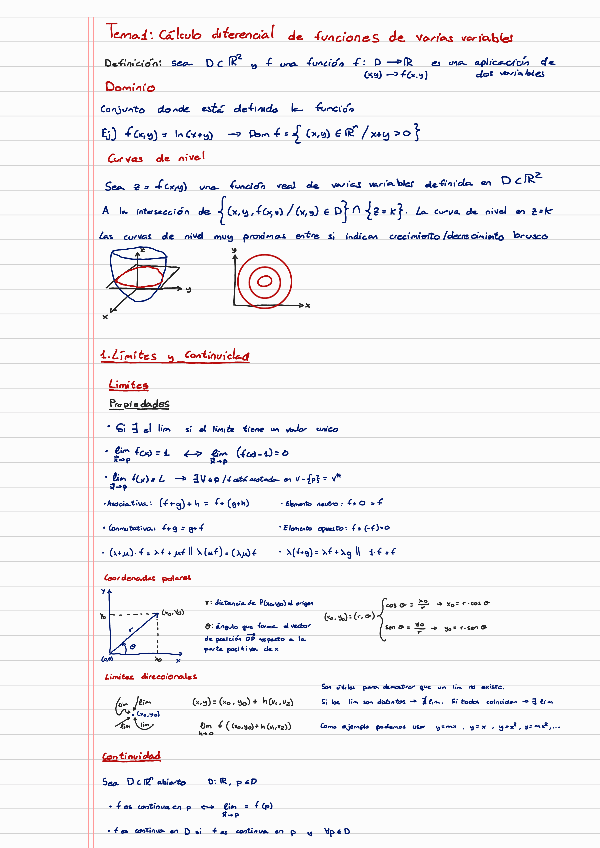 Tema 1: Cálculo diferencial de funciones de varias variables
Definición: sea D⊂ℝ² y f una función f: D → ℝ es una aplicación de
(x,y) → f(x,y) dos variables
Dominio
Conjunto donde está definido la función
Ej) f(x,y) = ln(x+y) → Dom f = { (x,y) ∈ ℝⁿ / x+y > 0 }
Curvas de nivel
Sea z = f(x,y) una función real de varias variables definida en D⊂ℝ²
A la intersección de {(x, y, f(x,y)) / (x,y) ∈ D} ∩ {z = k}. La curva de nivel en z=k
Las curvas de nivel muy proximas entre si indican crecimiento/decrecimiento brusco
z
y
x
y
x
1. Límites y Continuidad
Límites
Propiedades
· Si ∃ el lim si el límite tiene un valor unico
· lim f(x) = L ↔ lim (f(x)-L) = 0
x→p x→p
· lim f(x) = L → ∃ V de p / f está acotada en V-{p} = V*
x→p
· Asociativa: (f+g)+h = f+(g+h) · Elemento neutro: f+0 = f
· Conmutativa: f+g = g+f · Elemento opuesto: f+(-f)=0
· (λ+μ)·f = λf + μf || λ(μf) = (λμ)f · λ(f+g) = λf + λg || 1·f = f
Coordenadas polares
y
y₀
(x₀,y₀)
r
θ
(0,0) x₀ x
r: distancia de P(x₀,y₀) al origen
θ: ángulo que forma el vector
de posición OP respecto a la
parte positiva de x
(x₀,y₀) = (r,θ)
cos θ = x₀/r → x₀ = r·cos θ
sen θ = y₀/r → y₀ = r·sen θ
Límites direccionales
lim lim
(x₀,y₀)
lim lim
(x,y) = (x₀,y₀) + h(v₁,v₂)
lim f((x₀,y₀)+h(v₁,v₂))
h→0
Son útiles para demostrar que un lim no existe.
Si los lim son distintos → ∄ lim. Si todos coinciden → ∃ lim
Como ejemplo podemos usar y=mx, y=x, y=x², y=mx²,...
Continuidad
Sea D⊂ℝⁿ abierto D: ℝ, p∈D
· f es continua en p ↔ lim = f(p)
x→p
· f es continua en D si f es continua en p y ∀p∈D